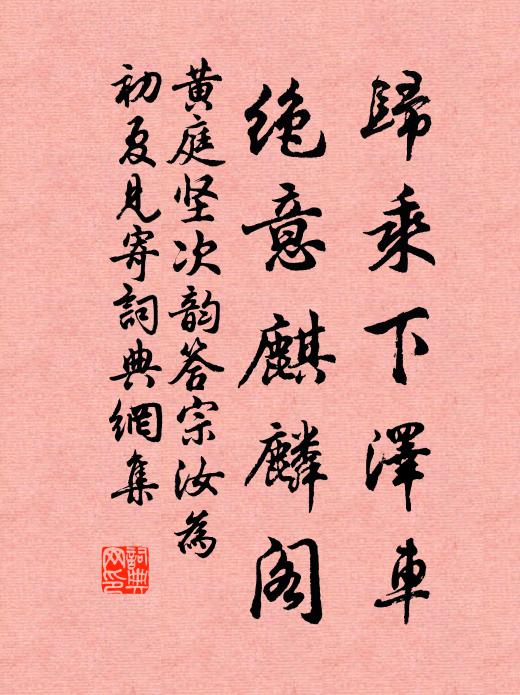 歸乘下澤車
绝意麒麟阁
黄庭坚次韵答宗汝為
初夏見寄詞典網集
詞典网印